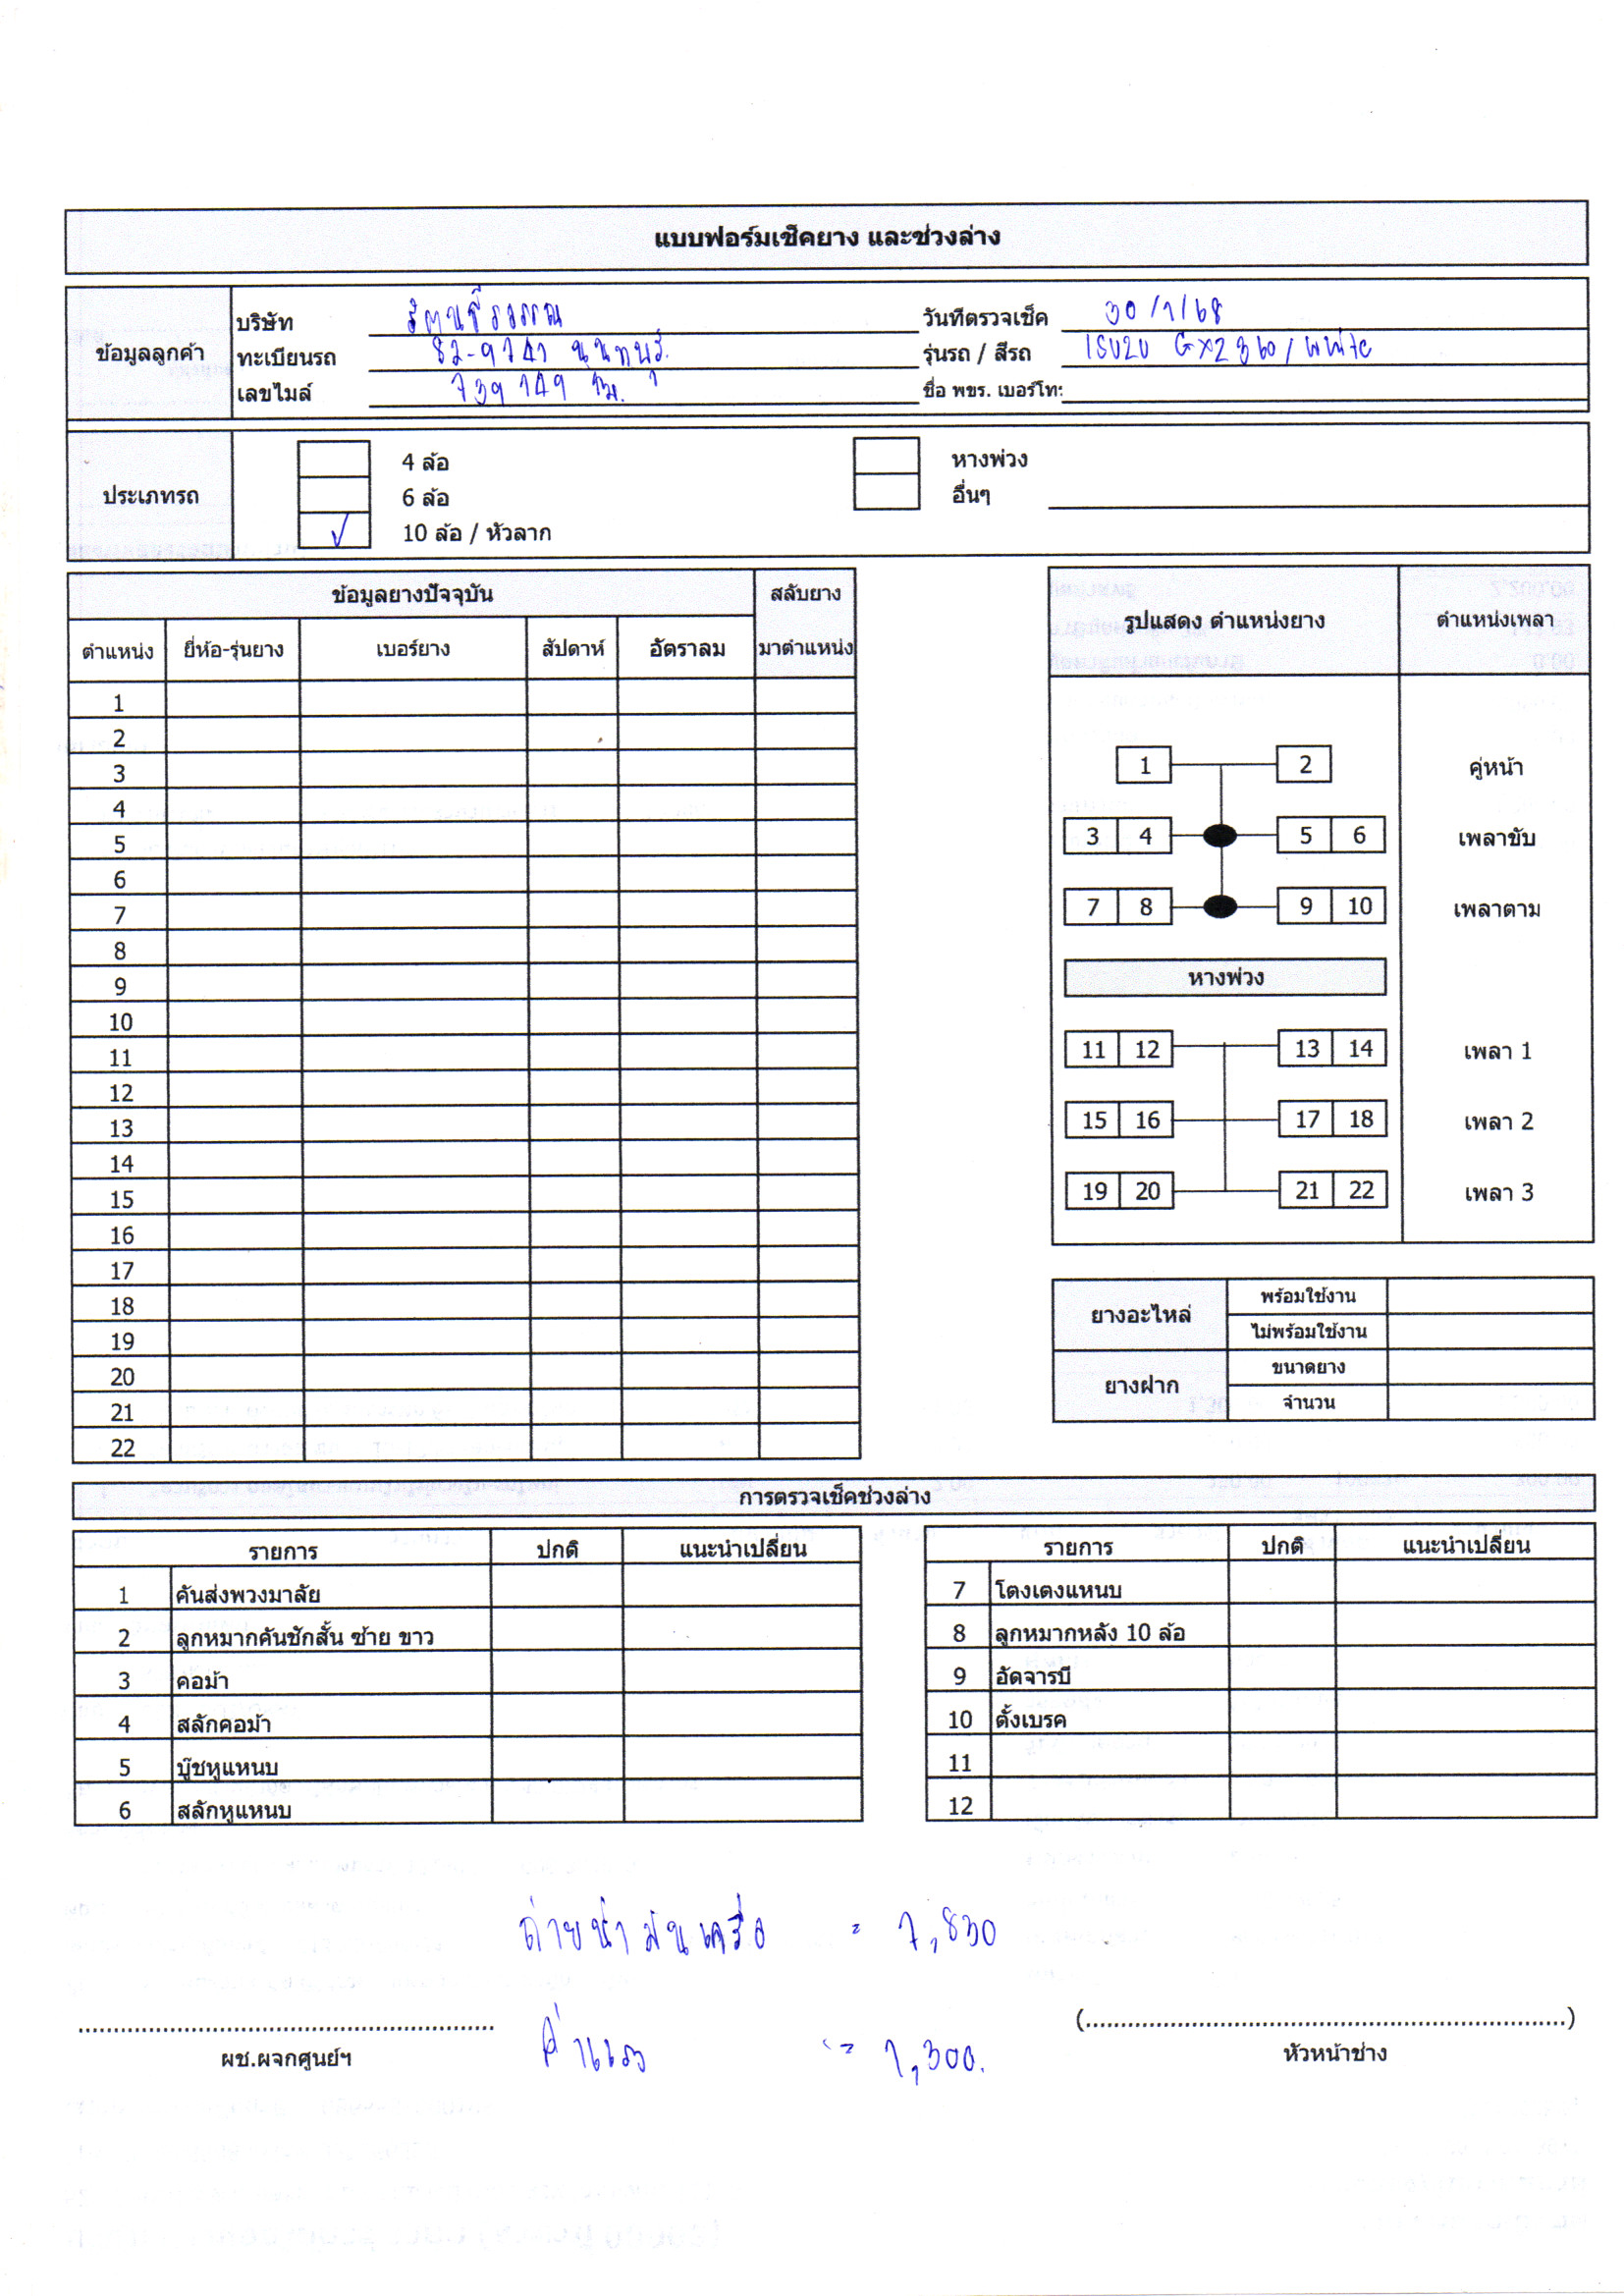 แบบฟอร์มเช็คยาง และช่วงล่าง
ข้อมูลลูกค้า
บริษัท
วันที่ตรวจเช็ค 30/1/68
ทะเบียนรถ นนทบุรี
รุ่นรถ / สีรถ ISUZU GXZ 360/White
เลขไมล์
ชื่อ พขร. เบอร์โท:
ประเภทรถ
4 ล้อ
หางพ่วง
6 ล้อ
อื่นๆ
✓ 10 ล้อ / หัวลาก
ข้อมูลยางปัจจุบัน สลับยาง
ตำแหน่ง ยี่ห้อ-รุ่นยาง เบอร์ยาง สัปดาห์ อัตราลม มาตำแหน่ง
1
2
3
4
5
6
7
8
9
10
11
12
13
14
15
16
17
18
19
20
21
22
รูปแสดง ตำแหน่งยาง ตำแหน่งเพลา
1 2 คู่หน้า
3 4 5 6 เพลาขับ
7 8 9 10 เพลาตาม
หางพ่วง
11 12 13 14 เพลา 1
15 16 17 18 เพลา 2
19 20 21 22 เพลา 3
ยางอะไหล่ พร้อมใช้งาน
ไม่พร้อมใช้งาน
ยางฝาก ขนาดยาง
จำนวน
การตรวจเช็คช่วงล่าง
รายการ ปกติ แนะนำเปลี่ยน
1 คันส่งพวงมาลัย
2 ลูกหมากคันชักสั้น ซ้าย ขาว
3 คอม้า
4 สลักคอม้า
5 บู๊ชหูแหนบ
6 สลักหูแหนบ
รายการ ปกติ แนะนำเปลี่ยน
7 โตงเตงแหนบ
8 ลูกหมากหลัง 10 ล้อ
9 อัดจารบี
10 ตั้งเบรค
11
12
ถ่ายน้ำมันเครื่อ = 7,830
ค่าแรง = 1,300.
ผช.ผจกศูนย์ฯ
(....................)
หัวหน้าช่าง